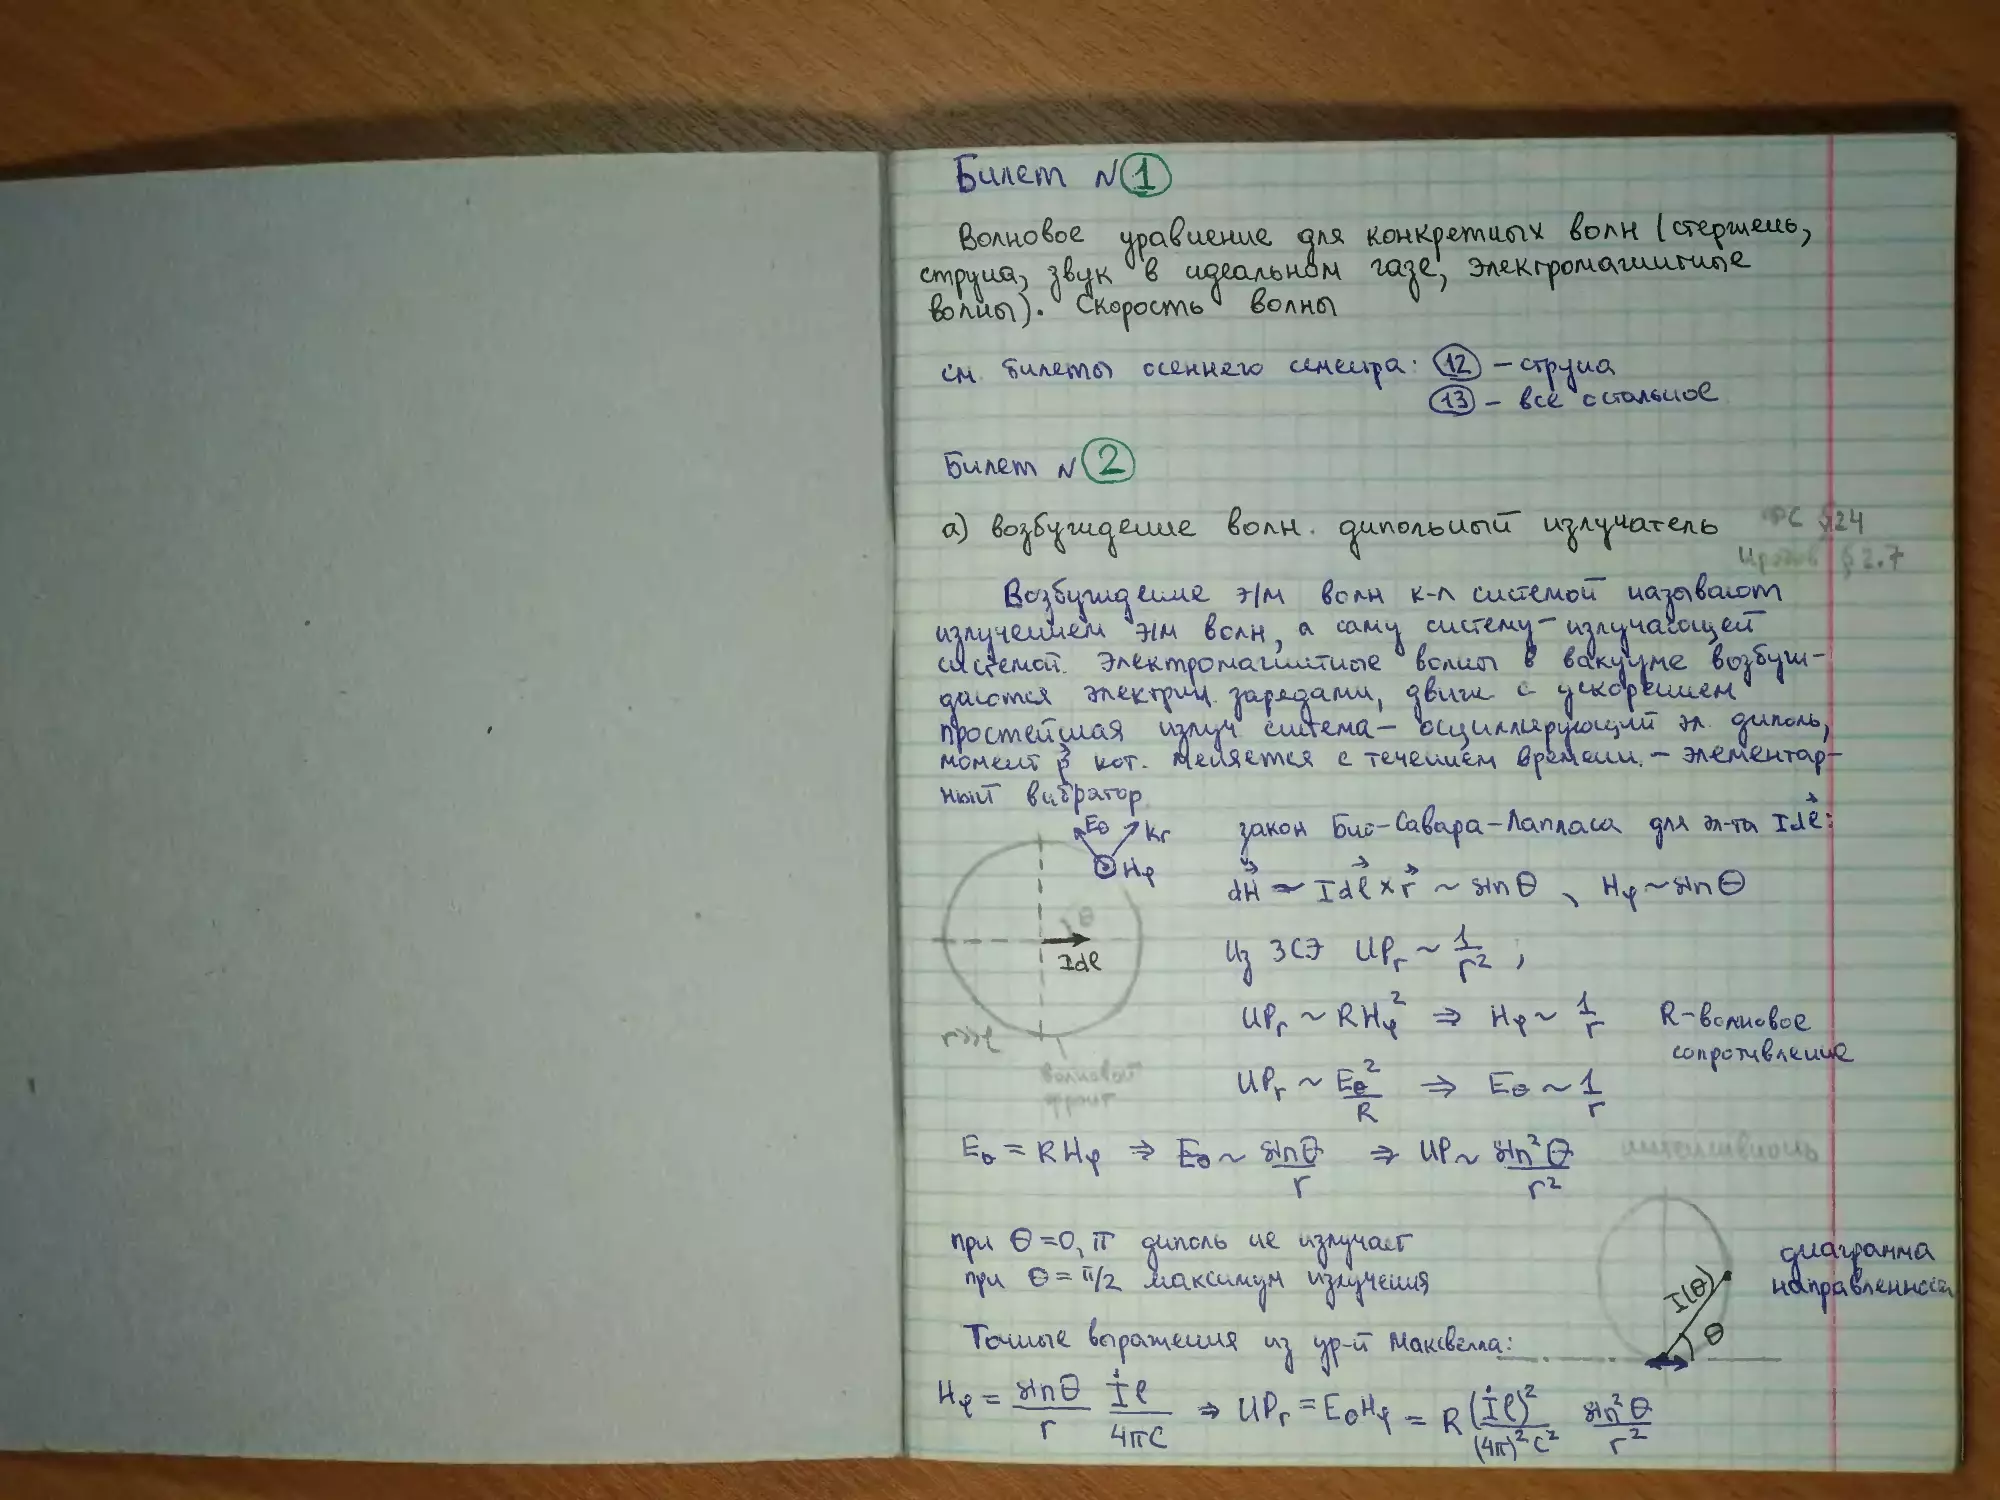 Билет N 1
Волновое уравнение для конкретных волн (стержень,
струна, звук в идеальном газе, электромагнитные
волны). Скорость волны
см. билеты осеннего семестра: 12 – струна
13 – всё остальное
Билет N 2
а) возбуждение волн. дипольный излучатель
§24
§2.7
Возбуждение э/м волн к-л системой называют
излучением э/м волн, а саму систему – излучающей
системой. Электромагнитные волны в вакууме возбуж-
даются электрич. зарядами, движ. с ускорением
простейшая излуч система – осциллирующий эл. диполь,
момент p⃗ кот. меняется с течением времени. – элементар-
ный вибратор.
Eθ kr
Hφ
θ
Idl
r>>l
волновой
фронт
закон Био-Савара-Лапласа для эл-та Idl⃗:
dH⃗ ~ Idl⃗ × r⃗ ~ sinθ, Hφ ~ sinθ
Из ЗСЭ UPr ~ 1/r²;
UPr ~ RHφ² ⇒ Hφ ~ 1/r R – волновое
сопротивление
UPr ~ Eθ²/R ⇒ Eθ ~ 1/r
Eθ = RHφ ⇒ Eθ ~ sinθ/r ⇒ UP ~ sin²θ/r² интенсивность
при θ = 0, π диполь не излучает
при θ = π/2 максимум излучения
диаграмма
направленности
I(θ)
θ
Точные выражения из ур-й Максвелла:
Hφ = sinθ/r İl/4πc ⇒ UPr = EθHφ = R (İl)²/(4π)²c² sin²θ/r²